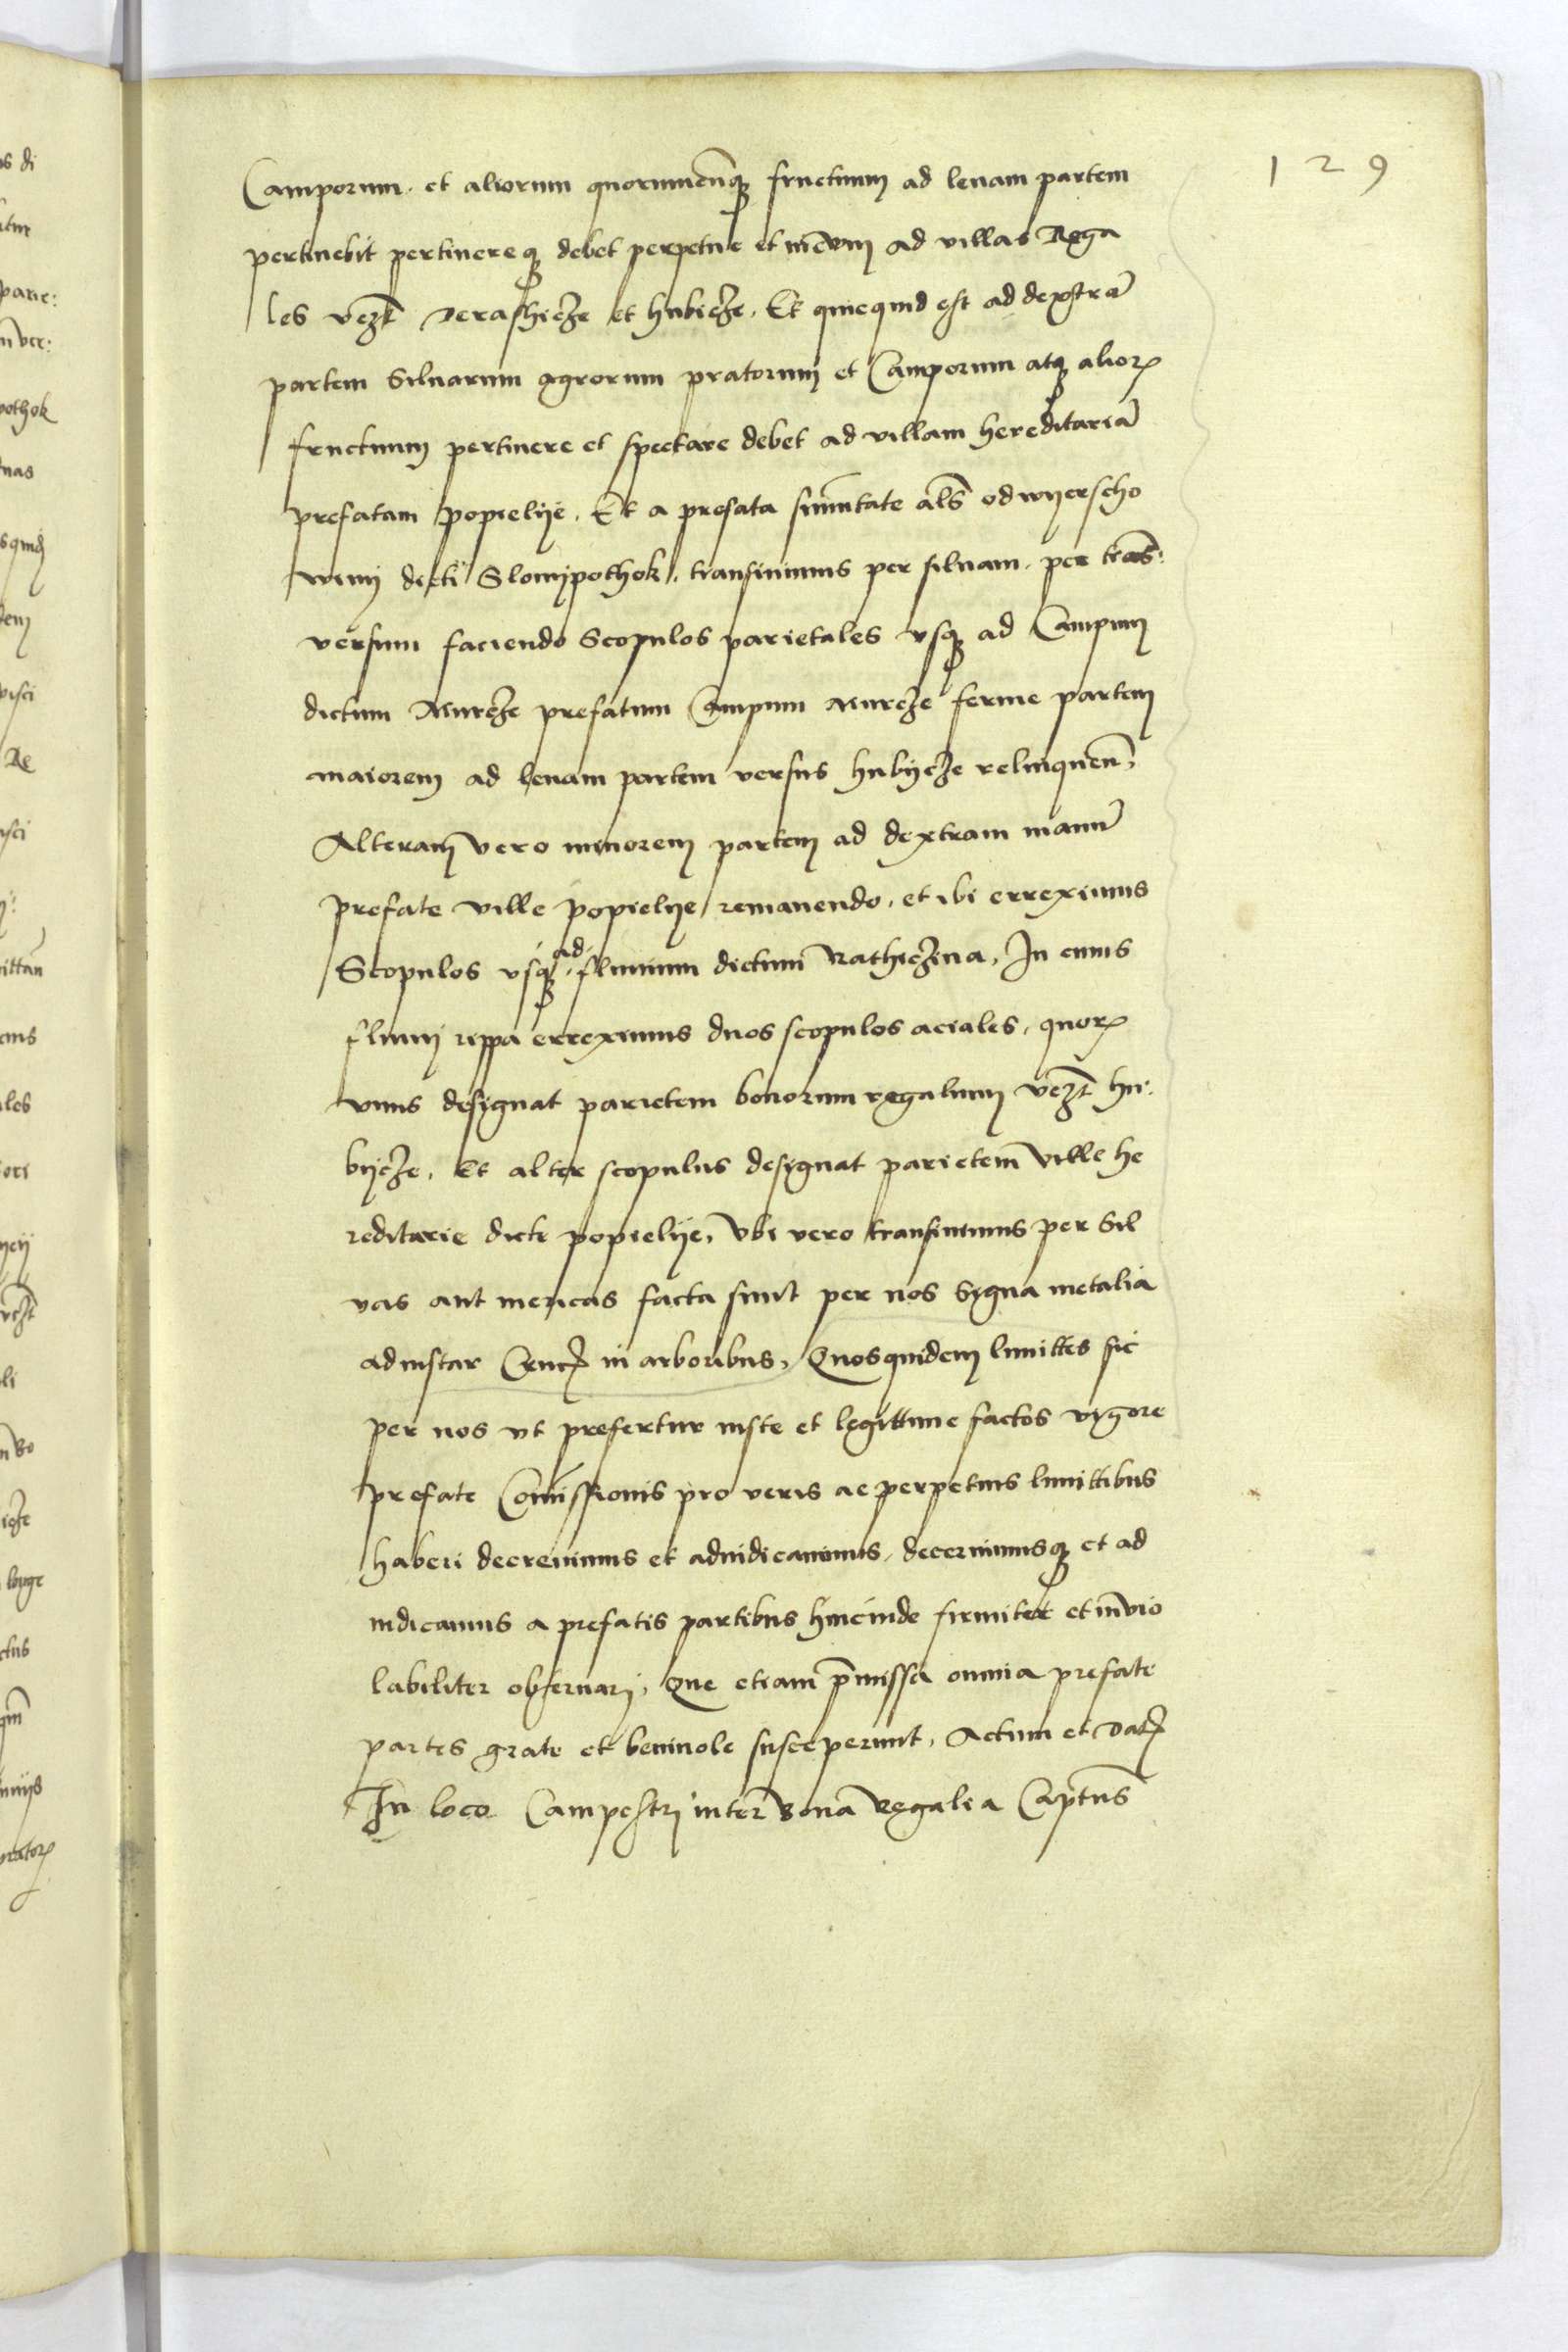 129
Camporum. et aliorum quorumcunq₃ fructuum ad leuam partem
pertinebit pertinereq₃ debet perpetue et in euum ad villas Rega
les vezt Derasthicze et hubicze. Et quicquid est ad dextrā
partem Siluarum agrorum pratorum et Camporum atq₃ alioꝝ
fructuum pertinere et spectare debet ad villam hereditariā
prefatam popielije. Et a prefata sumitate als od wyerscho
winy dicti Slonypothok. transiuimus per siluam. per trans:
versum faciendo Scopulos parietales vsq₃ ad Campum
dictum Mircze prefatum Campum Mircze ferme partem
maiorem ad leuam partem versus hubycze relinquen̄,
Alteram vero minorem partem ad dextram manū
prefate ville popielye remanendo. et ibi erreximus
Scopulos vsq₃ ad fluuium dictum Rathiczina, In cuius
fluuij rippa erreximus duos scopulos aciales. quoꝝ
vnus designat parietem bonorum regalium vezt hu:
bycze. Et alter scopulus designat parietem ville he
reditarie dicte popielye. Vbi vero transiuimus per Sil
vas aut mericas facta sunt per nos signa metalia
adinstar Cruc₃ in arboribus, Quosquidem limittes sic
per nos vt prefertur iuste et legittime factos vigore
prefate Com̄issionis pro veris ac perpetuis limittibus
haberi decreuimus et adiudicauimus. decernimusq₃ et ad
iudicamus a prefatis partibus hincinde firmiter et inuio
labiliter obseruarj. Que etiam p̄missa omnia prefate
partes grate et beniuole susceperunt. Actum et Dat₃
In loco Campestrj inter bona Regalia Captus